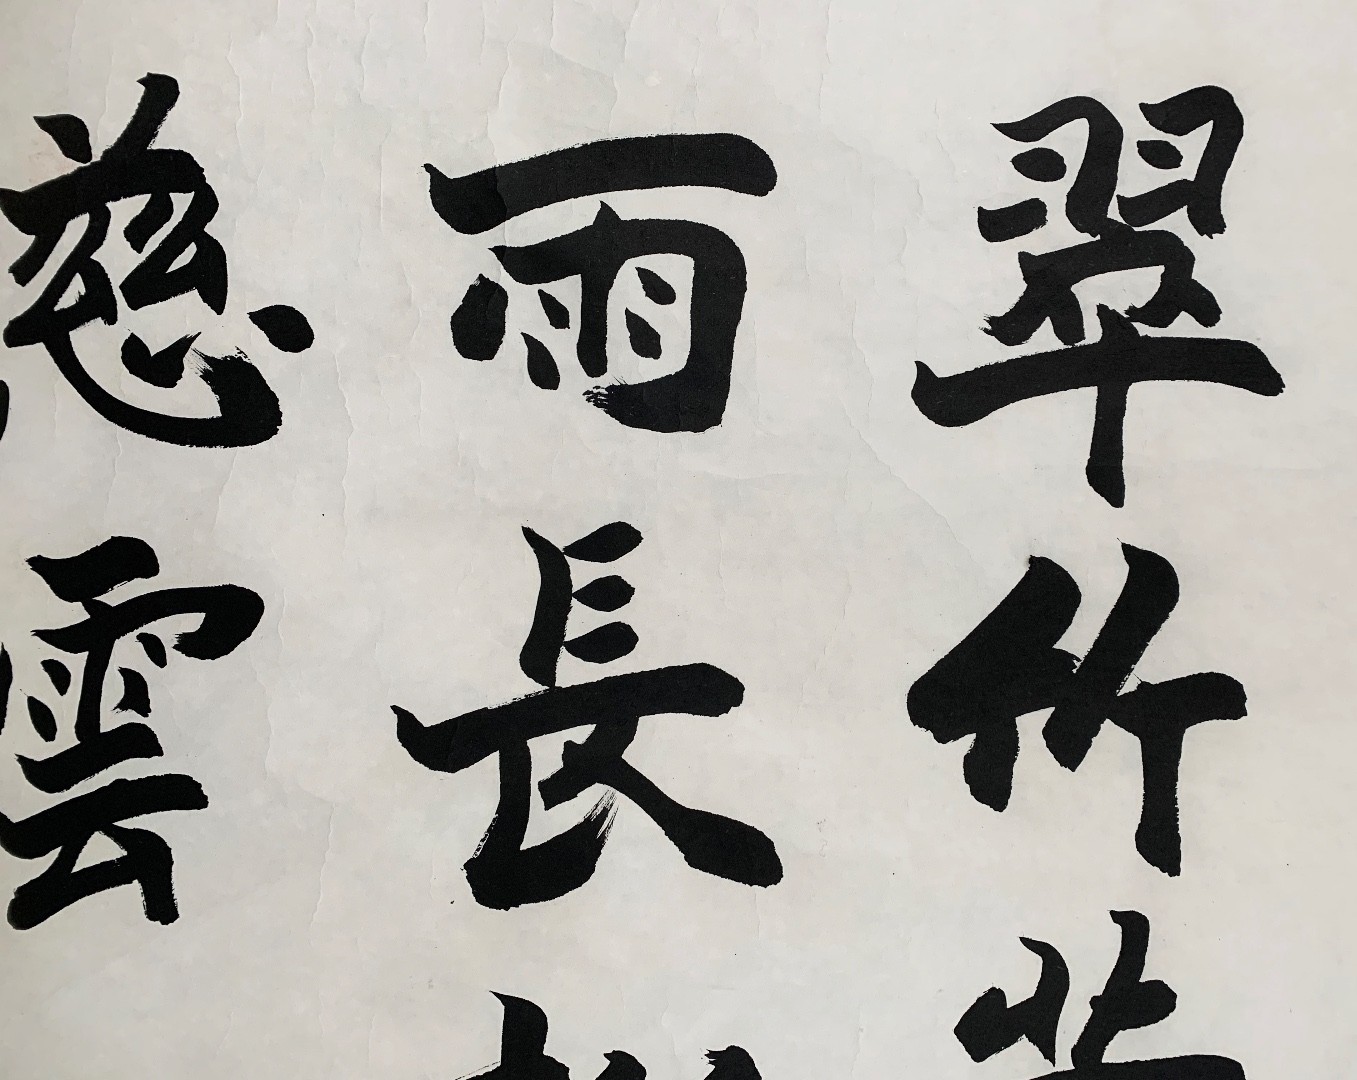 翠竹
雨長
慈雲